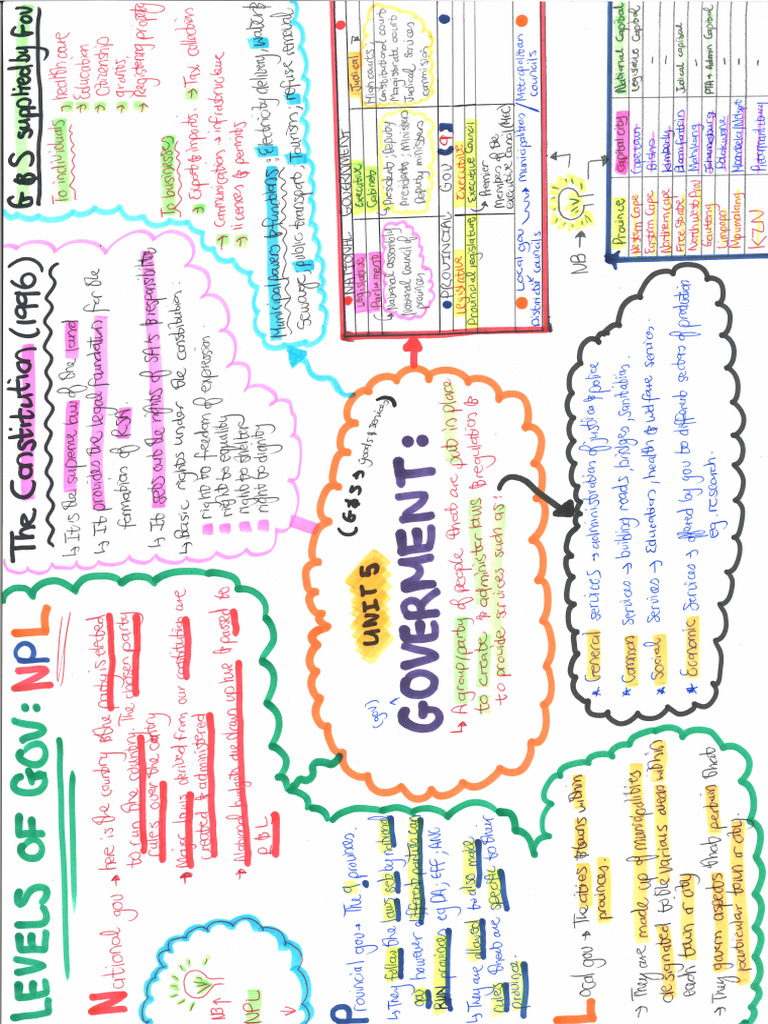 LEVELS OF GOV: NPL
National gov → here is the country & the party is elected
to run the country. The chosen party
rules over the country
→ Major laws derived from our constitution are
created & administered
→ National budgets are drawn up here & passed to
P & L
NB↑
NPL
↓
Provincial gov → The 9 provinces.
↳ They follow the laws set by national
gov however different parties can
RUN provinces eg DA; EFF; ANC
↳ They are allowed to also make
rules that are specific to their
province.
Local gov → The cities & towns within
provinces.
→ They are made up of municipalities
designated to the various areas within
each town or city
→ They govern aspects that pertain that
particular town or city.
The Constitution (1996)
↳ It is the supreme law of the land
↳ It provides the legal foundation for the
formation of RSA
↳ It sets out the rights of SA's & responsibilities
↳ Basic rights under the constitution:
right to freedom of expression
right to equality
right to shelter
right to dignity
(G&S → goods & services)
UNIT 5
(gov)
GOVERMENT:
↳ A group/party of people that are put in place
to create & administer laws & regulations &
to provide services such as:
★ General services → administration of justice & police
★ Common services → building roads, bridges, sanitation.
★ Social services → Education, health & welfare services.
★ Economic services → offered by gov to different sectors of production
eg. research.
G&S supplied by Gov
To individuals → health care
→ Education
→ Citizenship
→ grants
→ Registering property
To businesses
→ Exports & imports → Tax collection
→ Communications → infrastructure
→ licences & permits
Municipal laws & functions: Electricity delivery, water &
Sewage, public transport, Tourism, refuse removal
NATIONAL GOVERNMENT
Legislative
Parliament
↳ National assembly
National Council of
province
Executive
Cabinet
↳ President; Deputy
President; Ministers
Deputy ministers
Judical
High courts,
Constitutional court
Magistrate court
Judical services
commission
PROVINCIAL GOV (9)
Legislative
Provincial legislature
Executive
Executive Council
↳ Premier
Members of the
executive council (MEC)
Local gov → Municipalities / Metropolitan
District councils councils
NB →
Province Capital city National Capital
Western Cape Cape town Legislative Capital
Eastern Cape Bisho –
Northern Cape Kimberly –
Free State Bloemfontein Judical capital
North West Mahikeng –
Gauteng Johannesburg PTA → Admin Capital
Limpopo Polokwane –
Mpumalanga Nelspruit –
KZN Pietermaritzburg –